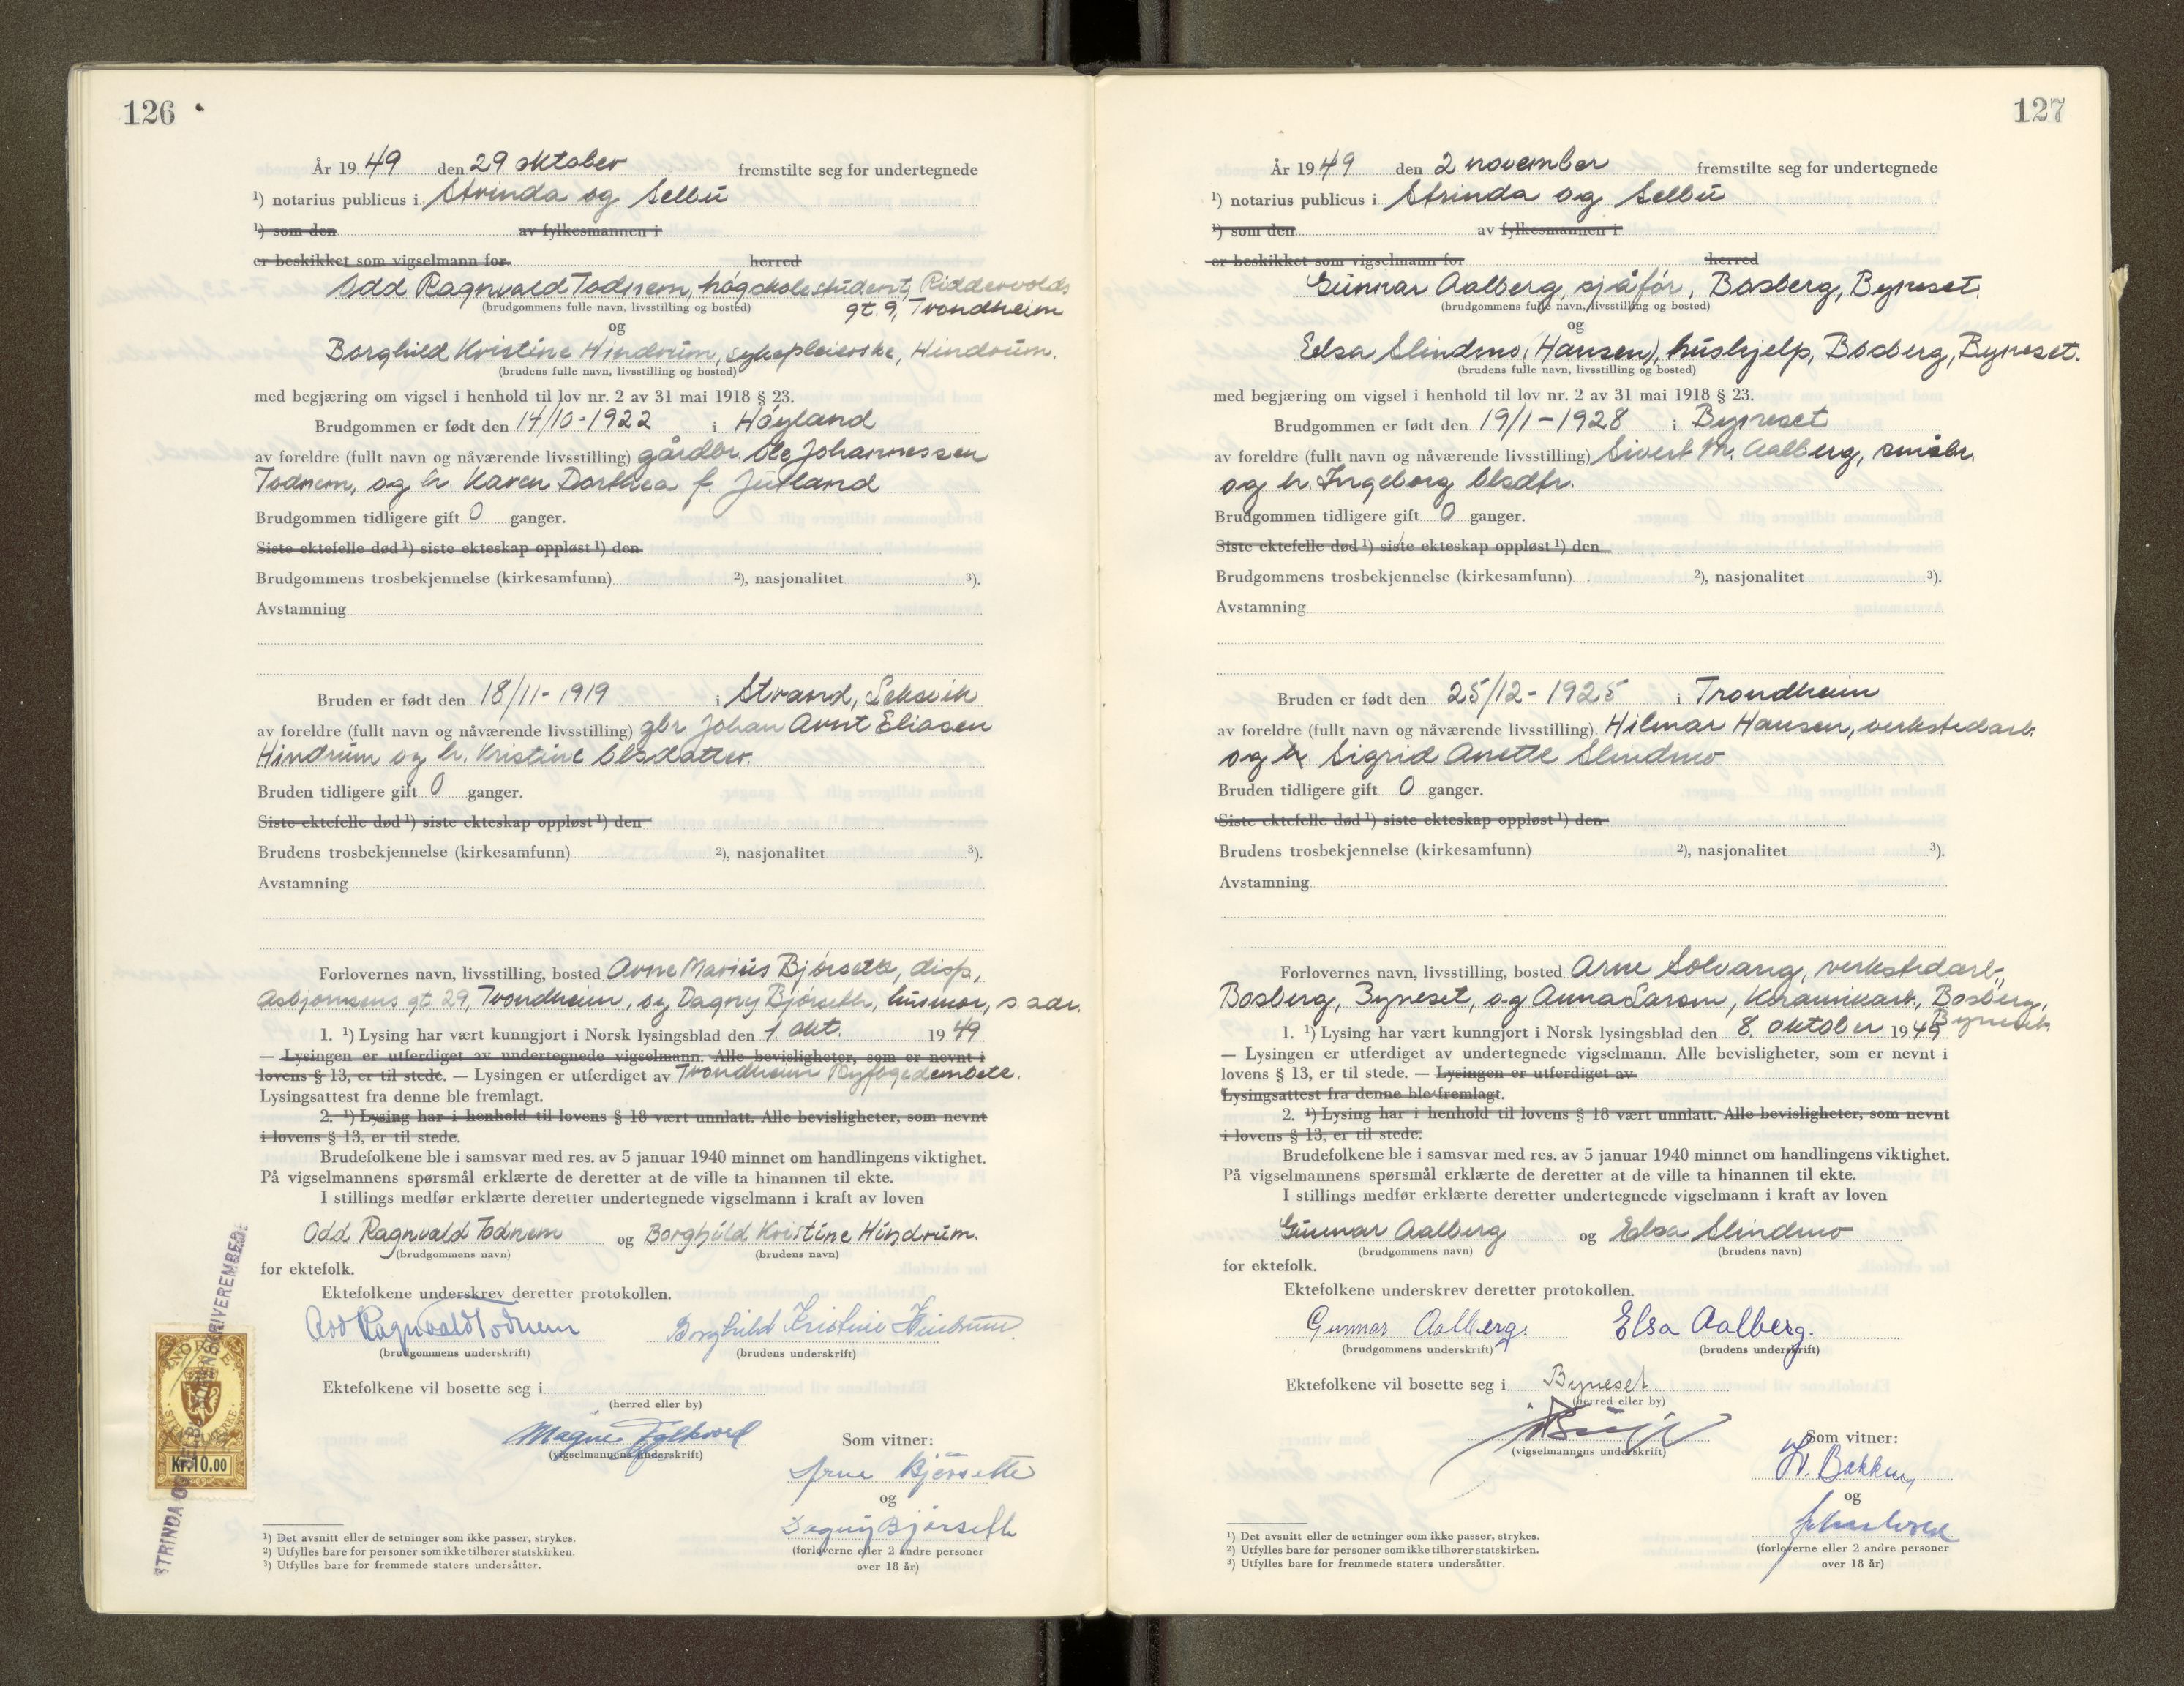 126
År 1949 den 29. oktober fremstilte seg for undertegnede
¹) notarius publicus i Strinda og Selbu
¹) som den av fylkesmannen i
er beskikket som vigselmann for herred
Odd Ragnvald Todnem, høgskolestudent, Riddervolds
gt. 9, Trondheim
(brudgommens fulle navn, livsstilling og bosted)
og
Borghild Kristine Hindrum, sykepleierske, Hindrum.
(brudens fulle navn, livsstilling og bosted)
med begjæring om vigsel i henhold til lov nr. 2 av 31 mai 1918 § 23.
Brudgommen er født den 14/10-1922 i Høyland
av foreldre (fullt navn og nåværende livsstilling) gårdbr. Ole Johannessen
Todnem, og h. Karen Dorthea f. Jutland
Brudgommen tidligere gift 0 ganger.
Siste ektefelle død ¹) siste ekteskap oppløst ¹) den
Brudgommens trosbekjennelse (kirkesamfunn) ²), nasjonalitet ³).
Avstamning
Bruden er født den 18/11-1919 i Strand, Leksvik
av foreldre (fullt navn og nåværende livsstilling) gbr. Johan Arnt Eliasen
Hindrum og h. Kristine Olsdatter.
Bruden tidligere gift 0 ganger.
Siste ektefelle død ¹) siste ekteskap oppløst ¹) den
Brudens trosbekjennelse (kirkesamfunn) ²), nasjonalitet ³).
Avstamning
Forlovernes navn, livsstilling, bosted Arne Marius Bjørseth, disp,
Asbjørnsens gt. 29, Trondheim, og Dagny Bjørseth, husmor, s. adr.
1. ¹) Lysing har vært kunngjort i Norsk lysingsblad den 1. okt. 1949
— Lysingen er utferdiget av undertegnede vigselmann. Alle bevisligheter, som er nevnt i
lovens § 13, er til stede. — Lysingen er utferdiget av Trondheim Byfogedembete.
Lysingsattest fra denne ble fremlagt.
2. ¹) Lysing har i henhold til lovens § 18 vært unnlatt. Alle bevisligheter, som nevnt
i lovens § 13, er til stede.
Brudefolkene ble i samsvar med res. av 5 januar 1940 minnet om handlingens viktighet.
På vigselmannens spørsmål erklærte de deretter at de ville ta hinannen til ekte.
I stillings medfør erklærte deretter undertegnede vigselmann i kraft av loven
Odd Ragnvald Todnem og Borghild Kristine Hindrum.
(brudgommens navn) (brudens navn)
for ektefolk.
Ektefolkene underskrev deretter protokollen.
Odd Ragnvald Todnem Borghild Kristine Hindrum.
(brudgommens underskrift) (brudens underskrift)
Ektefolkene vil bosette seg i
(herred eller by)
Magne
(vigselmannens underskrift)
Som vitner:
Arne Bjørseth
og
Dagny Bjørseth
(forloverne eller 2 andre personer
over 18 år)
NORGE
Kr. 10.00
STRINDA OG SELBU SORENSKRIVEREMBEDE
¹) Det avsnitt eller de setninger som ikke passer, strykes.
²) Utfylles bare for personer som ikke tilhører statskirken.
³) Utfylles bare for fremmede staters undersåtter.
127
År 1949 den 2 november fremstilte seg for undertegnede
¹) notarius publicus i Strinda og Selbu
¹) som den av fylkesmannen i
er beskikket som vigselmann for herred
Gunnar Aalberg, sjåfør, Bosberg, Byneset.
(brudgommens fulle navn, livsstilling og bosted)
og
Elsa Slindmo (Hansen), hushjelp, Bosberg, Byneset.
(brudens fulle navn, livsstilling og bosted)
med begjæring om vigsel i henhold til lov nr. 2 av 31 mai 1918 § 23.
Brudgommen er født den 19/1-1928 i Byneset
av foreldre (fullt navn og nåværende livsstilling) Sivert M. Aalberg, småbr.
og h. Ingeborg Olsdtr.
Brudgommen tidligere gift 0 ganger.
Siste ektefelle død ¹) siste ekteskap oppløst ¹) den
Brudgommens trosbekjennelse (kirkesamfunn) ²), nasjonalitet ³).
Avstamning
Bruden er født den 25/12-1925 i Trondheim
av foreldre (fullt navn og nåværende livsstilling) Hilmar Hansen, verkstedarb.
og Sigrid Anette Slindmo
Bruden tidligere gift 0 ganger.
Siste ektefelle død ¹) siste ekteskap oppløst ¹) den
Brudens trosbekjennelse (kirkesamfunn) ²), nasjonalitet ³).
Avstamning
Forlovernes navn, livsstilling, bosted Arne Solvang, verkstedarb.,
Bosberg, Byneset, og Anna Larsen, Keramikarb., Bosberg,
Byneset
1. ¹) Lysing har vært kunngjort i Norsk lysingsblad den 8. oktober 1949
— Lysingen er utferdiget av undertegnede vigselmann. Alle bevisligheter, som er nevnt i
lovens § 13, er til stede. — Lysingen er utferdiget av
Lysingsattest fra denne ble fremlagt.
2. ¹) Lysing har i henhold til lovens § 18 vært unnlatt. Alle bevisligheter, som nevnt
i lovens § 13, er til stede.
Brudefolkene ble i samsvar med res. av 5 januar 1940 minnet om handlingens viktighet.
På vigselmannens spørsmål erklærte de deretter at de ville ta hinannen til ekte.
I stillings medfør erklærte deretter undertegnede vigselmann i kraft av loven
Gunnar Aalberg og Elsa Slindmo
(brudgommens navn) (brudens navn)
for ektefolk.
Ektefolkene underskrev deretter protokollen.
Gunnar Aalberg. Elsa Aalberg.
(brudgommens underskrift) (brudens underskrift)
Ektefolkene vil bosette seg i Byneset
(herred eller by)
(vigselmannens underskrift)
Som vitner:
Bakken
og
(forloverne eller 2 andre personer
over 18 år)
¹) Det avsnitt eller de setninger som ikke passer, strykes.
²) Utfylles bare for personer som ikke tilhører statskirken.
³) Utfylles bare for fremmede staters undersåtter.